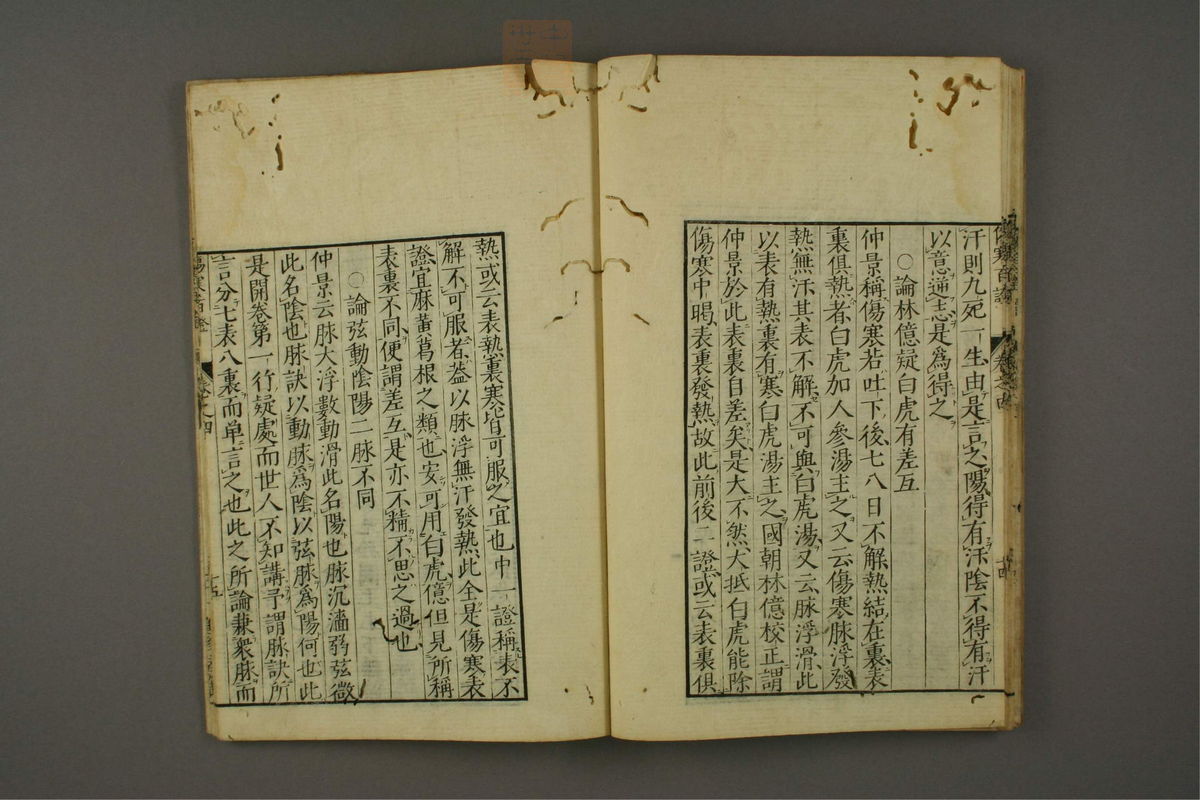 汗則九死一生由是言之陽得有汗陰不得有汗
以意逆志是爲得之
○論林億疑白虎有差互
仲景稱傷寒若吐下後七八日不解熱結在裏表
裏俱熱者白虎加人參湯主之又云傷寒脉浮發
熱無汗其表不解不可與白虎湯又云脉浮滑此
以表有熱裏有寒白虎湯主之國朝林億校正謂
仲景於此表裏自差矣是大不然大抵白虎能除
傷寒中暍表裏發熱故此前後二證或云表裏俱
熱或云表熱裏寒皆可服之宜也中一證稱表不
解不可服者蓋以脉浮無汗發熱此全是傷寒表
證宜麻黃葛根之類也安可用白虎億但見所稱
表裏不同便謂差互是亦不精不思之過也
○論弦動陰陽二脉不同
仲景云脉大浮數動滑此名陽也脉沉濇弱弦微
此名陰也脉訣以動脉爲陰以弦脉爲陽何也此
是開卷第一行疑處而世人不知講予謂脉訣所
言分七表八裏而单言之也此之所論兼衆脉而
卷之四
十五